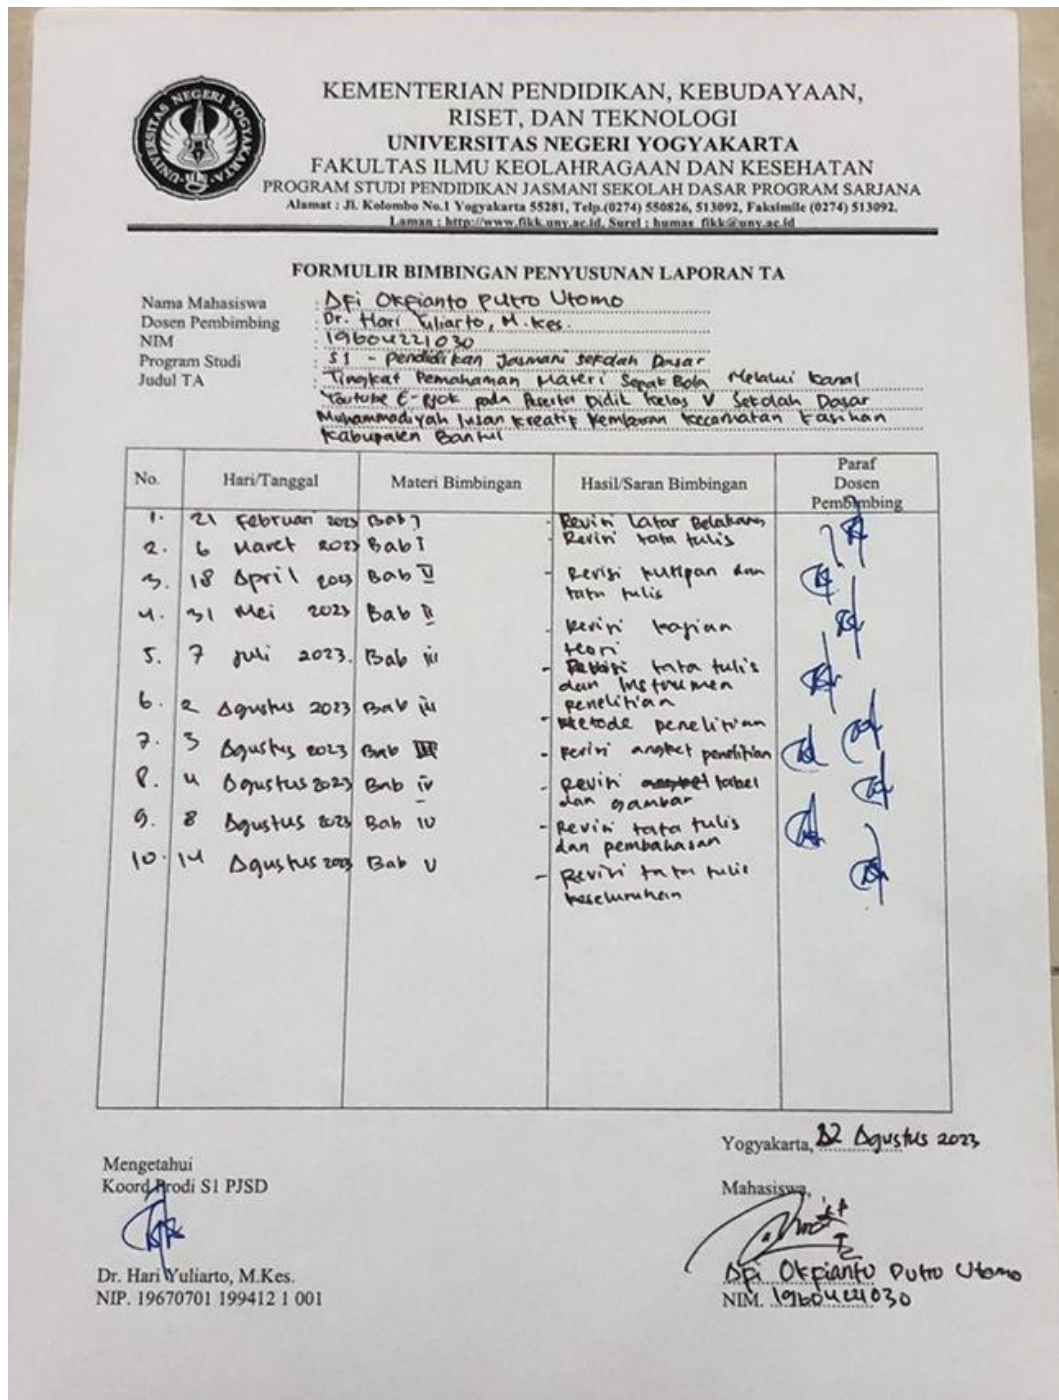 UNIVERSITAS NEGERI YOGYAKARTA
KEMENTERIAN PENDIDIKAN, KEBUDAYAAN,
RISET, DAN TEKNOLOGI
UNIVERSITAS NEGERI YOGYAKARTA
FAKULTAS ILMU KEOLAHRAGAAN DAN KESEHATAN
PROGRAM STUDI PENDIDIKAN JASMANI SEKOLAH DASAR PROGRAM SARJANA
Alamat : Jl. Kolombo No.1 Yogyakarta 55281, Telp.(0274) 550826, 513092, Faksimile (0274) 513092.
Laman : http://www.fikk.uny.ac.id, Surel : humas_fikk@uny.ac.id
FORMULIR BIMBINGAN PENYUSUNAN LAPORAN TA
Nama Mahasiswa : Okfianto Putro Utomo
Dosen Pembimbing : Dr. Hari Yuliarto, M.Kes.
NIM : 19604221030
Program Studi : S1 - Pendidikan Jasmani Sekolah Dasar
Judul TA : Tingkat Pemahaman Materi Sepak Bola Melalui Kanal
Youtube E-PJOK pada Peserta Didik Kelas V Sekolah Dasar
Muhammadiyah Insan Kreatif Kembaran Kecamatan Kasihan
Kabupaten Bantul
No. Hari/Tanggal Materi Bimbingan Hasil/Saran Bimbingan Paraf Dosen Pembimbing
1. 21 Februari 2023 Bab I - Revisi Latar Belakang
2. 6 Maret 2023 Bab I - Revisi tata tulis
3. 18 April 2023 Bab II - Revisi kutipan dan
tata tulis
4. 31 Mei 2023 Bab II - Revisi kajian
teori
5. 7 Juli 2023. Bab iii - Revisi tata tulis
dan Instrumen
penelitian
6. 2 Agustus 2023 Bab iii - Metode penelitian
7. 3 Agustus 2023 Bab III - Revisi angket penelitian
8. 4 Agustus 2023 Bab iv - Revisi tabel
dan gambar
9. 8 Agustus 2023 Bab IV - Revisi tata tulis
dan pembahasan
10. 14 Agustus 2023 Bab V - Revisi tata tulis
keseluruhan
Yogyakarta, 22 Agustus 2023
Mengetahui
Koord Prodi S1 PJSD
Mahasiswa,
Dr. Hari Yuliarto, M.Kes.
NIP. 19670701 199412 1 001
Okfianto Putro Utomo
NIM. 19604221030